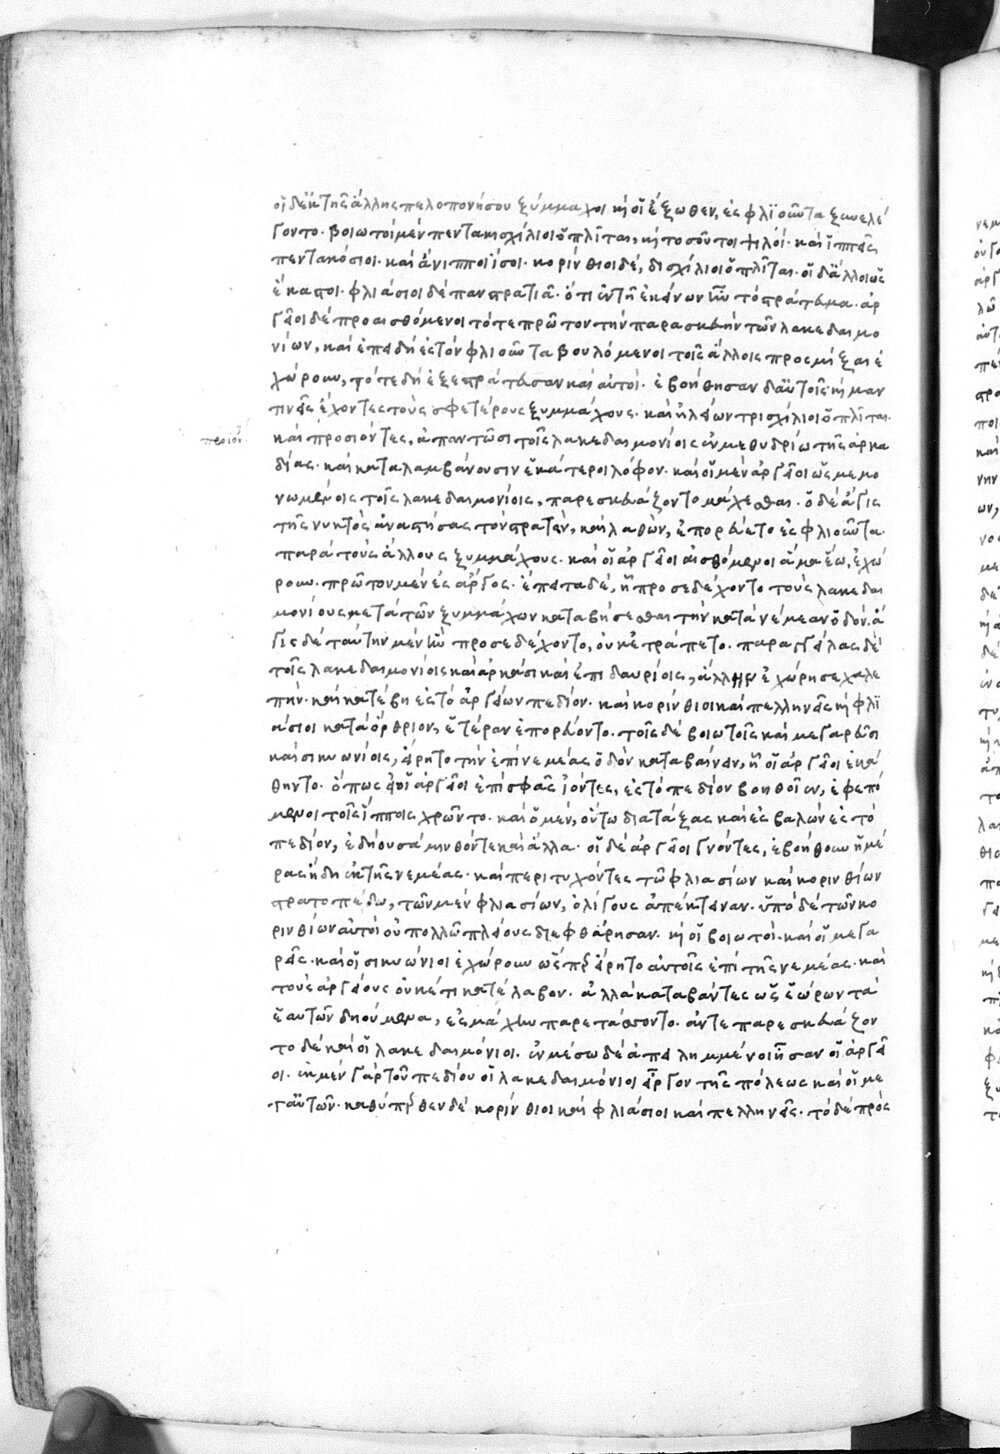 οἱ δ' ἐκ τῆς ἄλλης πελοπονήσου ξύμμαχοι κ(αὶ) οἱ ἔξωθεν, ἐς φλϊοῦντα ξυνελέ
γοντο· βοιωτοὶ μὲν πεντακισχίλιοι ὁπλῖται, κ(αὶ) τοσοῦτοι ψιλοί· καὶ ἱππῆς
πεντακόσιοι· καὶ ἄνιπποι ἴσοι· κορίνθιοι δὲ, δισχίλιοι ὁπλῖται· οἱ δ' ἄλλοι ὡς
ἕκαστοι· φλιάσιοι δὲ πανστρατιᾶ· ὅτι ἐν τῆ ἐκείνων ἦν τὸ στράτευμα· ἀρ
γεῖοι δὲ προαισθόμενοι τότε πρῶτον τὴν παρασκευὴν τῶν λακεδαιμο
νίων, καὶ ἐπειδὴ ἐς τὸν φλιοῦντα βουλόμενοι τοῖς ἄλλοις προςμίξαι ἐ
χώρουν, τότε δὴ ἐξεστράτευσαν καὶ αὐτοί· ἐβοήθησαν δ' αὐτοῖς κ(αὶ) μαν
τινεῖς ἔχοντες τοὺς σφετέρους ξυμμάχους· καὶ ἠλείων τρισχίλιοι ὁπλῖται·
καὶ προσιόντες, ἀπαντῶσι τοῖς λακεδαιμονίοις ἐν μεθυδρίω τῆς ἀρκα
δίας· καὶ καταλαμβάνουσιν ἑκάτεροι λόφον· καὶ οἱ μὲν ἀργεῖοι ὡς μεμο
νωμένοις τοῖς λακεδαιμονίοις, παρεσκευάζοντο μάχεσθαι· ὁ δὲ ἆγις
τῆς νυκτὸς ἀναστήσας τὸν στρατὸν, καὶ λαθὼν, ἐπορεύετο ἐς φλιοῦντα·
παρὰ τοὺς ἄλλους ξυμμάχους· καὶ οἱ ἀργεῖοι αἰσθόμενοι ἅμα ἕω, ἐχώ
ρουν· πρῶτον μὲν ἐς ἄργος· ἔπειτα δὲ, ἧ προσεδέχοντο τοὺς λακεδαι
μονίους μετὰ τῶν ξυμμάχων καταβήσεσθαι τὴν κατὰ νέμεαν ὁδόν. ἆ
γις δὲ ταύτην μὲν ἣν προσεδέχοντο, οὐκ ἐτράπετο· παραγγείλας δὲ
τοῖς λακεδαιμονίοις καὶ ἀρκάσι καὶ ἐπιδαυρίοις, ἄλλην ἐχώρησε χαλε
πήν· καὶ κατέβη ἐς τὸ ἀργείων πεδίον· καὶ κορίνθιοι καὶ πελληνεῖς κ(αὶ) φλϊ
άσιοι κατὰ ὄρθριον, ἑτέραν ἐπορεύοντο· τοῖς δὲ βοιωτοῖς καὶ μεγαρεῦσι
καὶ σικυωνίοις, εἴρητο τὴν ἐπὶ νεμέας ὁδὸν καταβαίνειν, ἧ οἱ ἀργεῖοι ἐκά
θηντο· ὅπως εἰ οἱ ἀργεῖοι ἐπὶ σφᾶς ἰόντες, ἐς τὸ πεδίον βοηθοῖεν, ἐφεπό
μενοι τοῖς ἵπποις χρῶντο· καὶ ὁ μὲν, οὕτω διατάξας καὶ ἐςβαλὼν ἐς τὸ
πεδίον, ἐδήου σάμινθόν τε καὶ ἄλλα· οἱ δὲ ἀργεῖοι γνόντες, ἐβοήθουν ἡμέ
ρας ἤδη ἐκ τῆς νεμέας· καὶ περιτυχόντες τῶ φλιασίων καὶ κορινθίων
στρατοπέδω, τῶν μὲν φλιασίων, ὀλίγους ἀπέκτειναν· ὑπὸ δὲ τῶν κο
ρινθίων αὐτοὶ οὐ πολλῶ πλείους διεφθάρησαν· κ(αὶ) οἱ βοιωτοὶ· καὶ οἱ μεγα
ρεῖς· καὶ οἱ σικυώνιοι ἐχώρουν ὥσπερ εἴρητο αὐτοῖς ἐπὶ τῆς νεμέας· καὶ
τοὺς ἀργείους οὐκέτι κατέλαβον· ἀλλὰ καταβάντες ὡς ἑώρων τὰ
ἑαυτῶν δηούμενα, ἐς μάχην παρετάσσοντο· ἀντεπαρεσκευάζον
το δὲ καὶ οἱ λακεδαιμόνιοι. ἐν μέσω δὲ ἀπειλημμένοι ἦσαν οἱ ἀργεῖ
οι. ἐκ μὲν γὰρ τοῦ πεδίου οἱ λακεδαιμόνιοι εἶργον τῆς πόλεως καὶ οἱ με
τ' αὐτῶν· καθύπερθεν δὲ κορίνθιοι καὶ φλιάσιοι καὶ πελληνεῖς· τὸ δὲ πρὸς